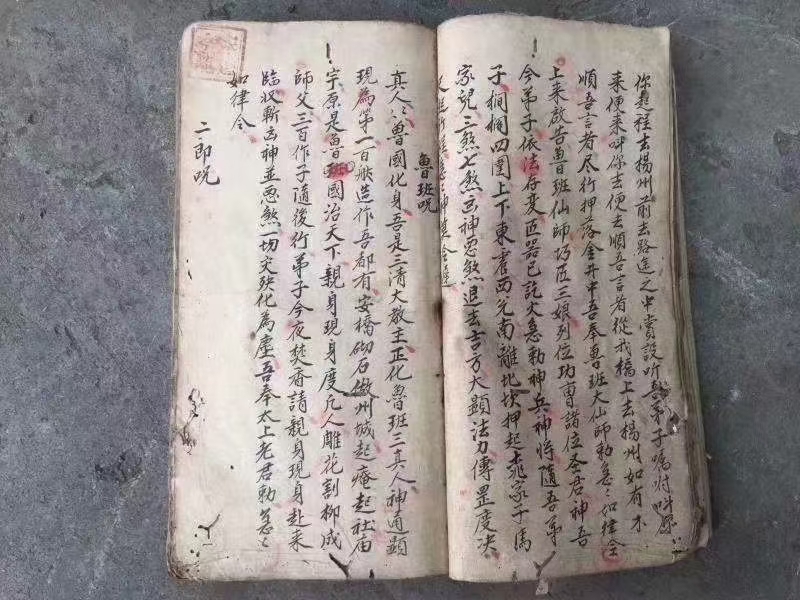 你起程去揚州前去路途之中賞設听吾弟子嘱咐叫你
来便来呼你去便去順吾言者從我橋上去揚州如有不
順吾言者尽行押落金井中吾奉魯班大仙師勅急〻如律令
上来啟告魯班仙師巧匠三娘列位功曹諸位圣君神吾
今弟子依法存变匠器已訖火急勅神兵神将隨吾弟
子欄欄四圍上下東震西兌南離北坎押起走家子馬
家兒三煞七煞凶神惡煞退去吉方大顯法力傳罡度决
魯班咒
真人〻魯國化身吾是三清大教主正化魯班三真人神通顯
現為第一百般造作吾都有安橋砌石做州城起庵起社庙
宇原是魯班國治天下親身現身度凡人雕花割柳成
師父三百作子隨後行弟子今夜焚香請親身現身赴来
臨收斬凶神並惡煞一切灾殃化為塵吾奉太上老君勅急〻
如律令
二郎咒